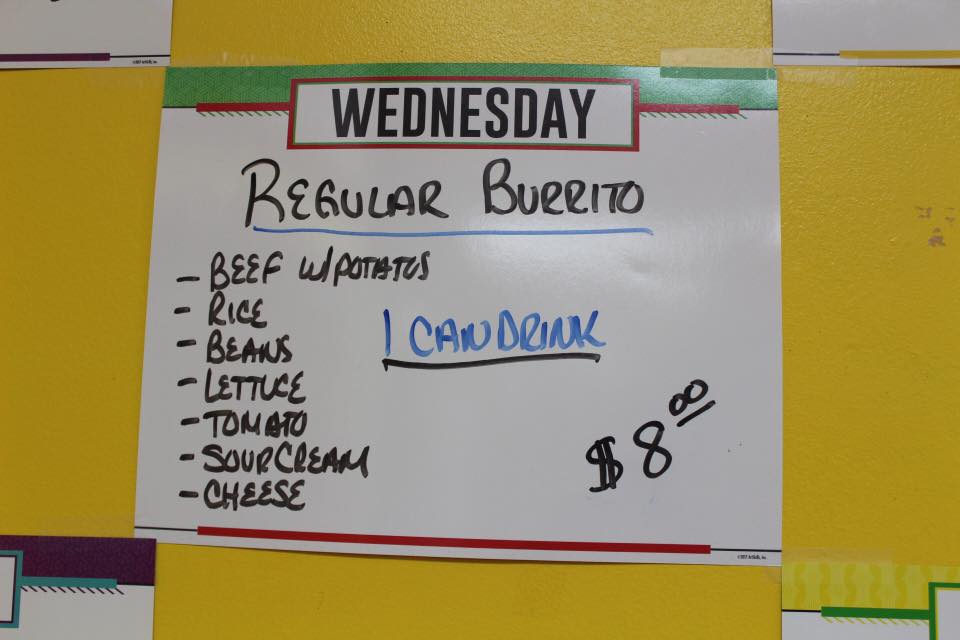 WEDNESDAY
REGULAR BURRITO
- BEEF W/POTATOS
- RICE
- BEANS
- LETTUCE
- TOMATO
- SOUR CREAM
- CHEESE
1 CAN DRINK
$8.00